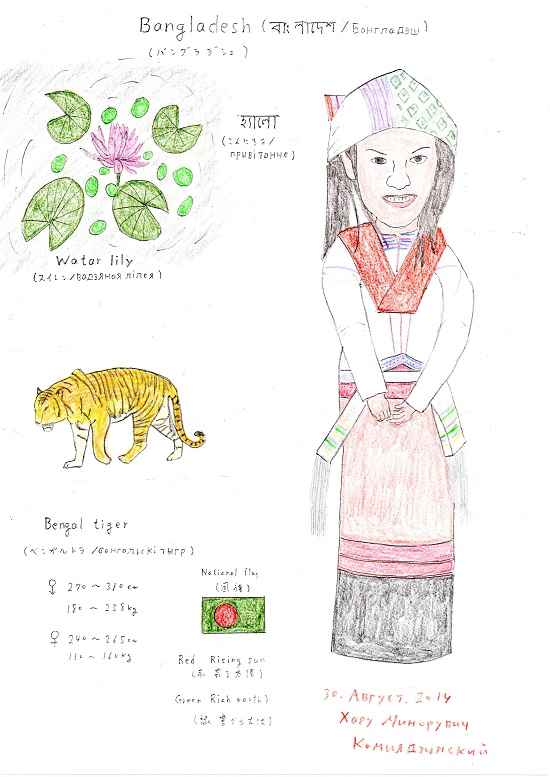 Bangladesh (বাংলাদেশ/Бонгладэш)
(バングラデシュ)
হ্যালো
(こんにちは/
прывітанне)
Watar lily
(スイレン/вадзяная лілея)
Bengal tiger
(ベンガルトラ/бенгольскі тыгр)
♂ 270～310cm
180～258kg
♀ 240～265cm
110～160kg
National flag
(国旗)
Red Rising sun
(赤 昇る太陽)
Green Rich earth)
(緑 豊かな大地)
30. Август. 2014
Хару Минорувич
Комиядзинский